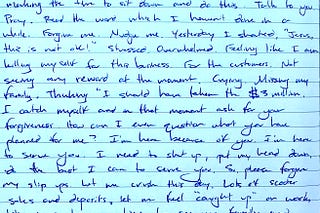 making the time to sit down and do this. Talk to you
Pray. Read the word which I haven't done in a
while. Forgive me. Nudge me. Yesterday I shouted, "Jesus,
this is not ok!" Stressed. Overwhelmed. Feeling like I am
killing myself for this business. For the customers. Not
seeing any reward at the moment. Crying. Missing my
family. Thinking "I should have taken the $3 million.
I catch myself and in that moment ask for your
forgiveness. How can I even question what you have
planned for me? I'm here because of you. I'm here
to serve you. I need to shut up, put my head down,
do the best I can to serve you. So, please forgive
my slip ups. Let me crush this day. Lots of scooter
sales and deposits, let me feel "caught up" on work,